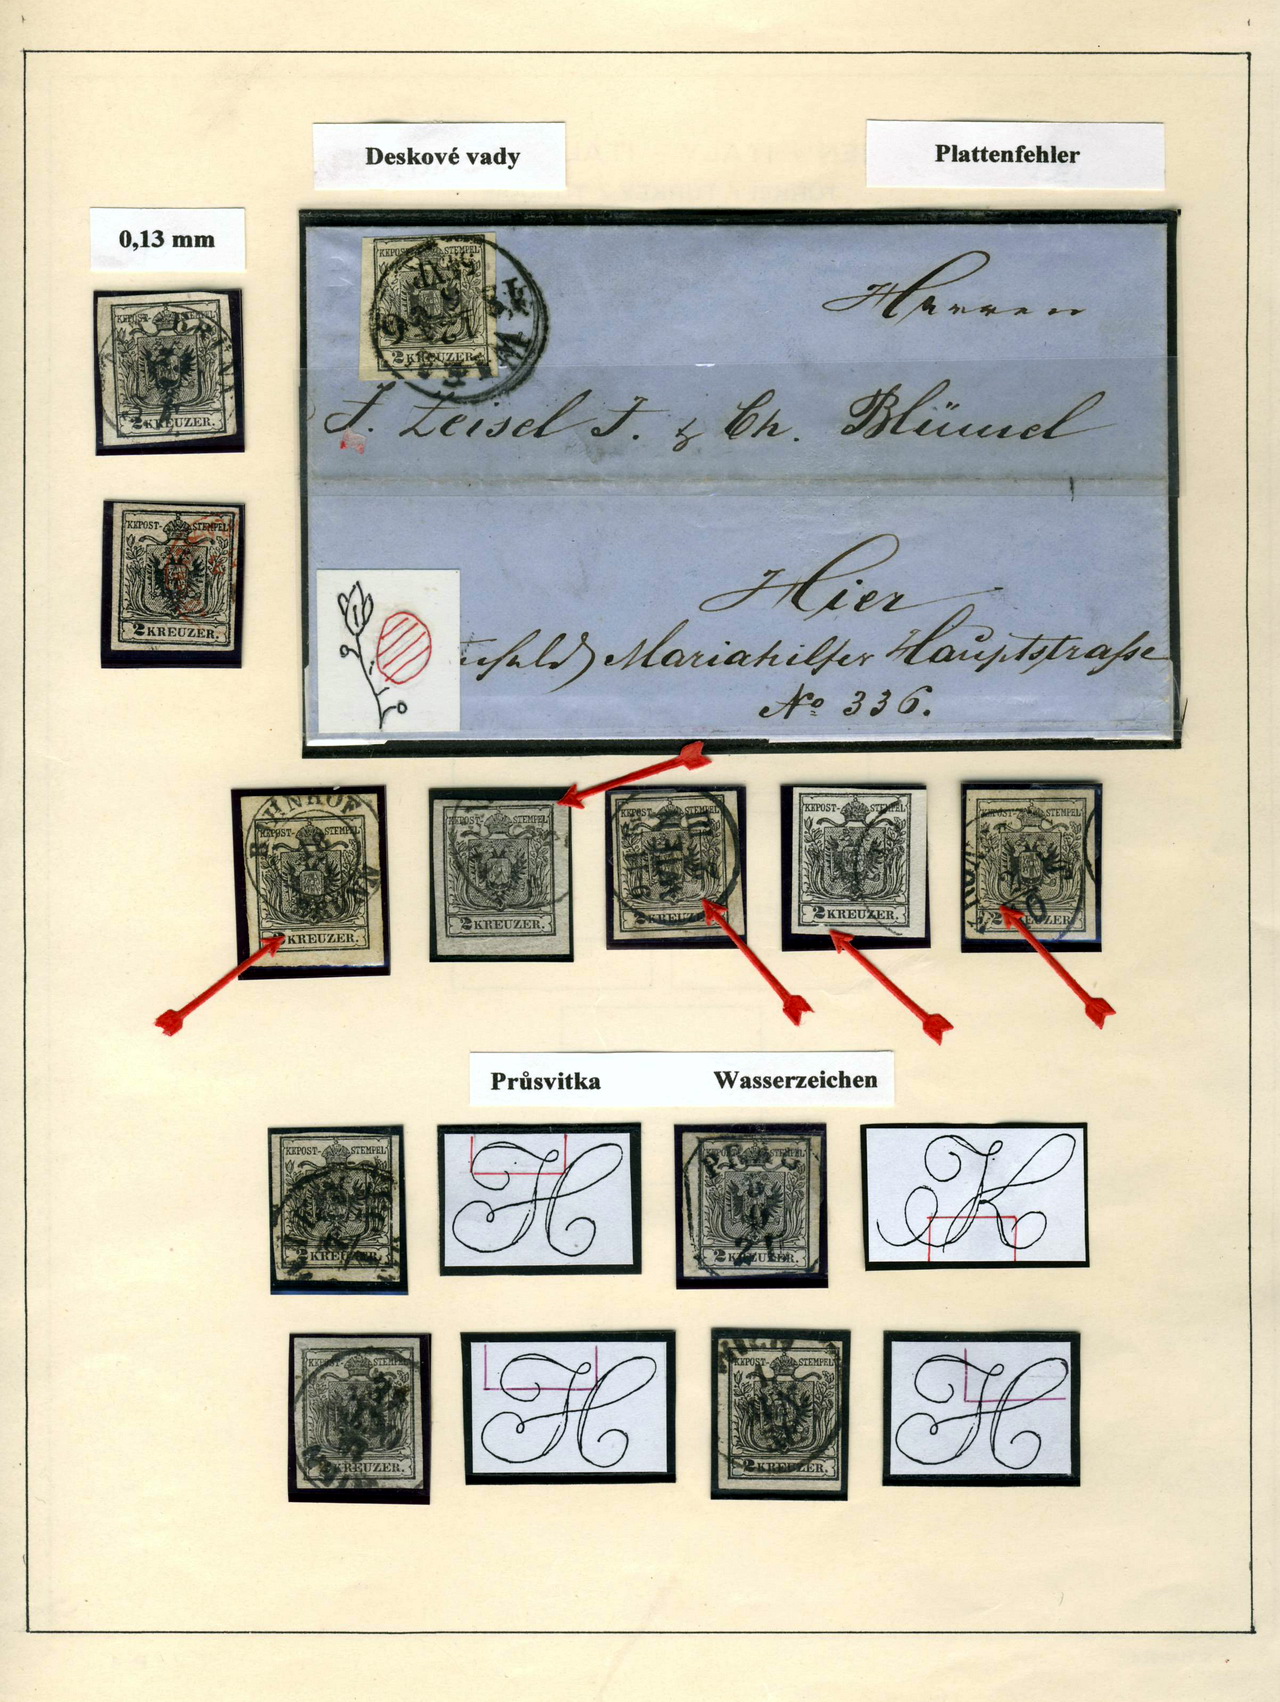 Deskové vady
Plattenfehler
0,13 mm
KKPOST-STEMPEL
2 KREUZER.
KKPOST-STEMPEL
WIEN
2 KREUZER.
Herren
J. Zeisel J. & Ch. Blümel
KKPOST-STEMPEL
2 KREUZER.
Hier
Mariahilfer Hauptstrasse
No 336.
BAHNHOF
WIEN
KKPOST-STEMPEL
2 KREUZER.
KKPOST-STEMPEL
2 KREUZER.
KKPOST-STEMPEL
2 KREUZER.
KKPOST-STEMPEL
2 KREUZER.
KKPOST-STEMPEL
2 KREUZER.
Průsvitka
Wasserzeichen
KKPOST-STEMPEL
2 KREUZER.
H
PRAG
KKPOST-STEMPEL
2 KREUZER.
K
KKPOST-STEMPEL
2 KREUZER.
H
KKPOST-STEMPEL
2 KREUZER.
H